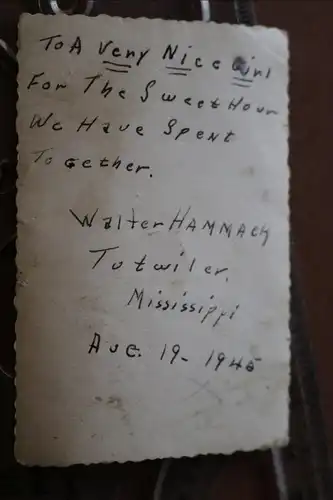 To A Very Nice Girl
For The Sweet Hour
We Have Spent
Together.
Walter HAMMACK
Tutwiler,
Mississippi
Aug. 19- 1945